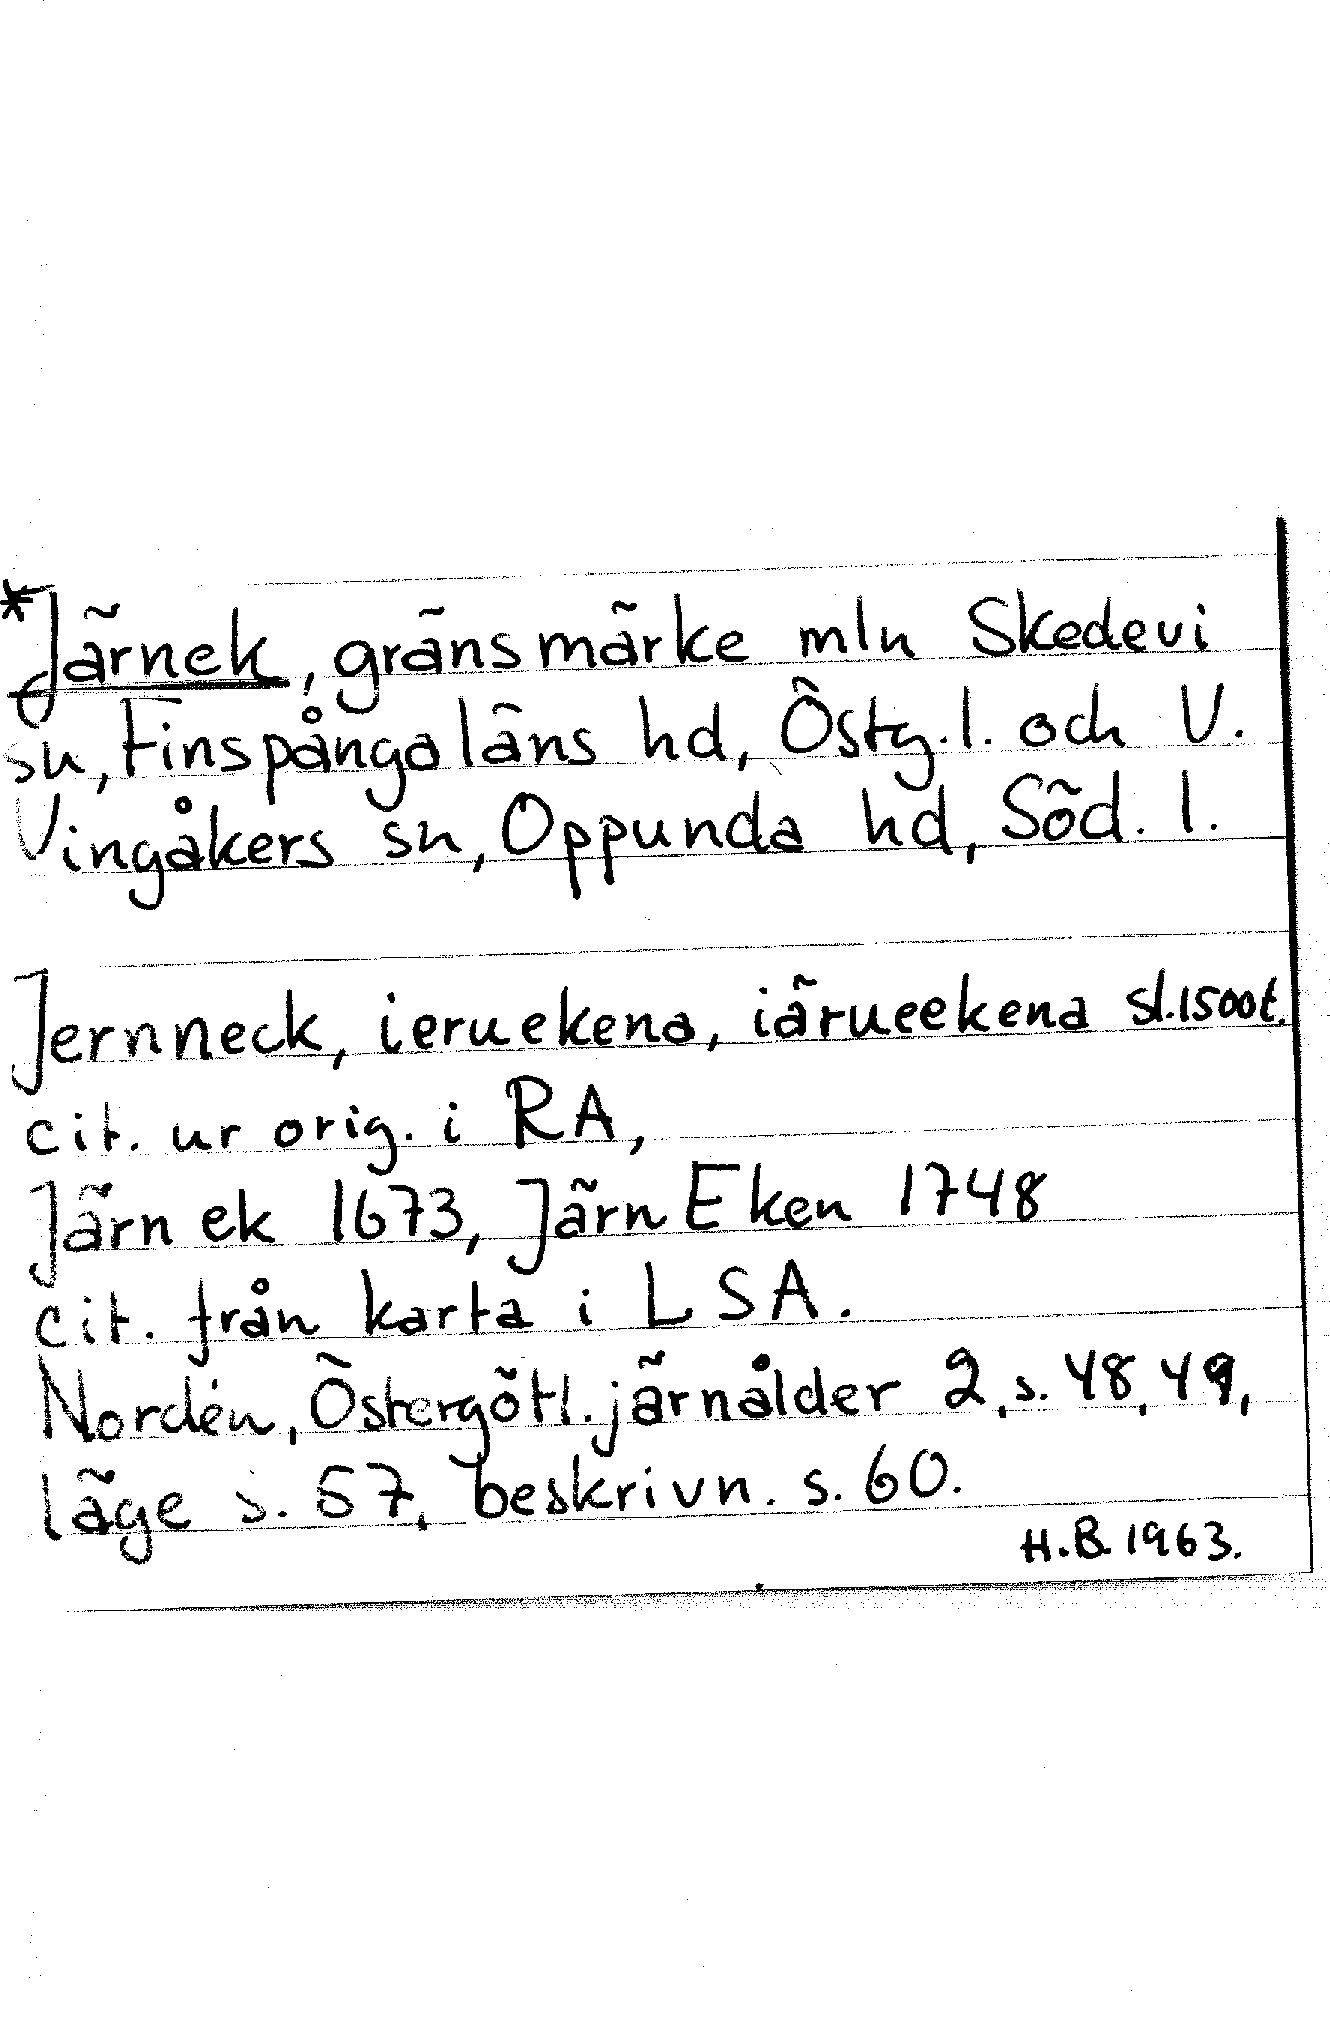 *Järnek, gränsmärke mln Skedevi
sn, Finspångaläns hd, Östg.l. och V.
Vingåkers sn, Oppunda hd, Söd. l.
Jernneck, ieruekena, iärueekena sl.1500t.
cit. ur orig. i RA,
Järn ek 1673, Järn Eken 1748
cit. från karta i LSA.
Nordén, Östergötl. järnålder 2, s. 48, 49,
läge s. 57, beskrivn. s. 60.
H.B. 1963.